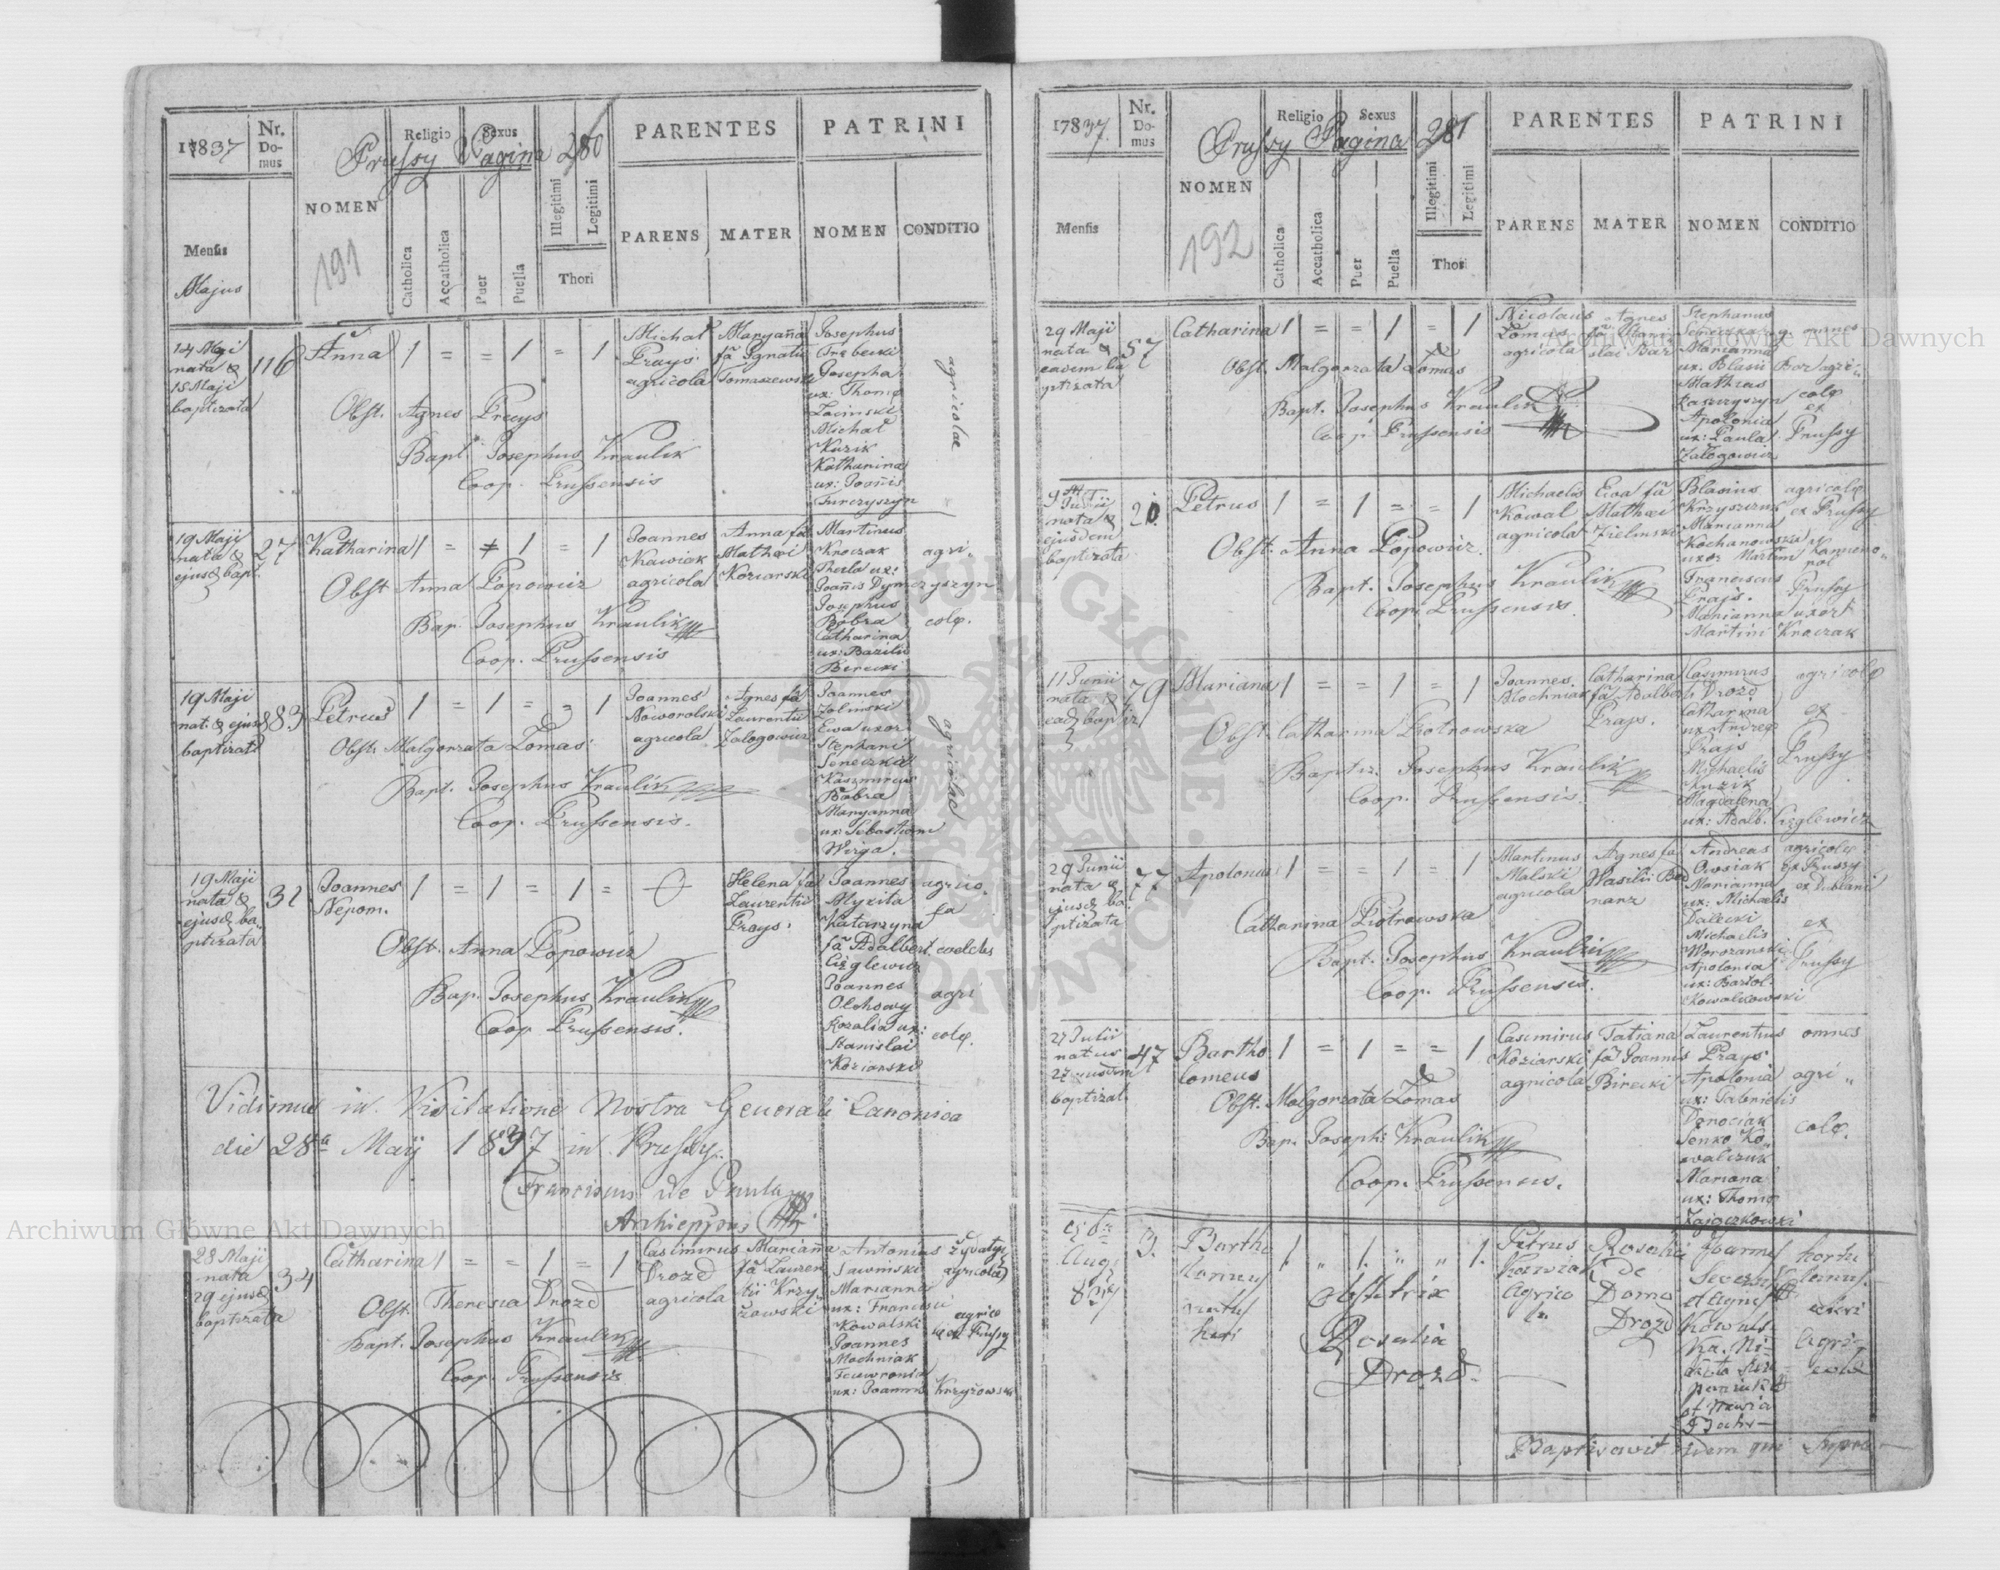 1837
Nr. Domus
Prussy Pagina 280
NOMEN
191
Religio
Sexus
Catholica
Accatholica
Puer
Puella
Illegitimi
Legitimi
Thori
PARENTES
PARENS
MATER
PATRINI
NOMEN
CONDITIO
Mensis
Majus
14 Maji
nata &
15 Maji
baptizata
116
Anna
1 = = 1 = 1
Michał
Prays
agricola
Maryanna
fa Ignatii
Tomaszewski
Josephus
Josepha
ux: Thoma
Michał
Kuzik
Katharina
ux: Joannis
Turczyszyn
agricolae
Obst. Agnes Preys
Bapt. Josephus Kraulik
Coop. Prussensis
19 Maji
nata &
ejusd bapt.
27
Katharina
1 = = 1 = 1
Joannes
Kawiak
agricola
Anna fa
Mathaei
Koziarski
Martinus
Kroczak
Thecla ux:
Joannis Dymczyszyn
Josephus
Bobra
Catharina
ux: Bazilii
Berecki
agri
colae.
Obst Anna Popowicz
Bap. Josephus Kraulik
Coop. Prussensis
19 Maji
nat. & ejusd
baptizat
83
Petrus
1 = 1 = = 1
Joannes
Noworolski
agricola
Agnes fa
Laurentii
Zalogowicz
Joannes
Zolinski
Ewa uxor
Stephani
Seneczka
Kazimirus
Bobra
Maryanna
ux: Sebastiani
Wirga.
agricolae
Obst. Malgorzata Lomas
Bapt. Josephus Kraulik
Coop. Prussensis.
19 Maji
nata &
ejusd ba
ptizata
32
Joannes
Nepom.
1 = 1 = 1 =
Helena fa
Laurentii
Prays.
Joannes
Mykita
Katarzyna
fa Adalbert
Cizglewicz
Joannes
Olchowy
Rozalia ux:
Stanislai
Koziarski
agric.
fa
caelebs
agri
colae.
Obst. Anna Popowicz
Bap. Josephus Kraulik
Coop. Prussensis.
Vidimus in Visitatione Nostra Generali Canonica
die 28a Maij 1837 in Prussy.
Franciscus de Paula
Archieppus
28 Maji
nata
29 ejusd
baptizata
34
Catharina
1 = = 1 = 1
Casimirus
Drozd
agricola
Marianna
fa Lauren
tii Krzy
żowski
Antonius
Sawinski
Marianna
ux: Francisci
Kowalski
Joannes
Mochniak
ux: Joannis Krzyżowski
agricola
agrico
Obst. Theresia Drozd
Bapt. Josephus Kraulik
Coop. Prussensis
1837
Nr. Domus
Prussy Pagina 281
NOMEN
192
Religio
Sexus
Catholica
Accatholica
Puer
Puella
Illegitimi
Legitimi
Thori
PARENTES
PARENS
MATER
PATRINI
NOMEN
CONDITIO
Mensis
29 Maji
nata &
eadem ba
ptizata
57
Catharina
1 = = 1 = 1
Nicolaus
Lomas
agricola
Agnes
Stephanus
Seneczka
Marianna
ux. Blasii Bor
Mathias
Kaszczyszyn
Apolonia
ux: Paula
Zalogowicz
omnes
agri
colae
ex
Prussy
Obst. Malgorzata Lomas
Bapt. Josephus Kraulik
Coop. Prussensis
nata &
ejusdem
baptizata
20
Petrus
1 = 1 = = 1
Michaelis
Kowal
agricola
Ewa fa
Mathaei
Zielinski
Blasius
Marianna
Kochanowska
uxor Martini
Franciscus
Prajs.
Marianna uxor
Martini Kroczak
agricolae
ex Prussy
Prussy
Obst. Anna Popowicz
Bapt. Josephus Kraulik
Coop. Prussensis.
11 Junii
nata &
79
Mariana
1 = = 1 = 1
Joannes
Mochniak
Catharina
fa Adalber
Prays.
Casimirus
Drozd
Catharina
Prajs
Michaelis
Kuzik
Magdalena
ux: Adalb. Cizglewicz
agricolae
ex
Prussy
Obst. Catharina Piotrowska
Baptiz. Josephus Kraulik
Coop. Prussensis.
29 Junii
nata &
ejusd ba
ptizata
77
Apolonia
1 = = 1 = 1
Martinus
Malski
agricola
Agnes fa
Wasilii Bed
narz
Andreas
Owsiak
Marianna
ux: Michaelis
Dalecki
Michaelis
Worozanski
Apolonia
ux: Bartol.
Kowalikowski
agricolae
ex Prussy
ex Dublani
ex
Prussy
Catharina Piotrowska
Bapt. Josephus Kraulik
Coop. Prussensis.
27 Julii
natus
27 ejusdem
baptizat
47
Bartho
lomeus
1 = 1 = = 1
Casimirus
Koziarski
agricola
Tatiana
fa Joannis
Birecki
Laurentius
Prays
Apolonia
ux: Gabrielis
Senko Ko
walczuk
Mariana
ux: Thoma
Zajączkowski
omnes
agri
colae.
Obst. Malgorzata Lomas
Bap. Joseph: Kraulik
Coop. Prussensis.
Aug
837
3.
Bartho
lomeus
natus
heri
1 " 1. " " 1.
Petrus
Kawiak
Agrico
la
Rosalia
de
Domo
Drozd
Joannes
et Agnes
Agri
colae
Obstetrix
Rosalia
Drozd.
Baptisavit idem qui supra
Archiwum Główne Akt Dawnych
Archiwum Główne Akt Dawnych
ARCHIWUM GŁÓWNE AKT DAWNYCH